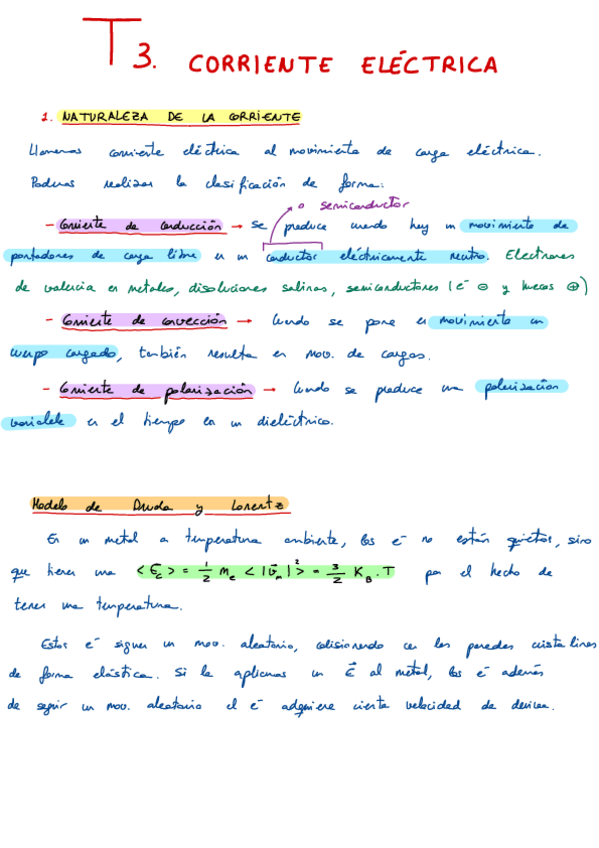 T3. CORRIENTE ELÉCTRICA
1. NATURALEZA DE LA CORRIENTE
Llamamos corriente eléctrica al movimiento de carga eléctrica.
Podemos realizar la clasificación de forma:
o semiconductor
- Corriente de conducción → se produce cuando hay un movimiento de
portadores de carga libre en un conductor eléctricamente neutro. Electrones
de valencia en metales, disoluciones salinas, semiconductores (e⁻ ⊖ y huecos ⊕)
- Corriente de convección → Cuando se pone en movimiento un
cuerpo cargado, también resulta en mov. de cargas.
- Corriente de polarización → Cuando se produce una polarización
variable en el tiempo en un dieléctrico.
Modelo de Druda y Lorentz
En un metal a temperatura ambiente, los e⁻ no están quietos, sino
que tienen una <Ec> = 1/2 me <|v⃗n|²> = 3/2 KB · T por el hecho de
tener una temperatura.
Estos e⁻ siguen un mov. aleatorio, colisionando con las paredes cristalinas
de forma elástica. Si le aplicamos un E⃗ al metal, los e⁻ además
de seguir un mov. aleatorio el e⁻ adquiere cierta velocidad de deriva.